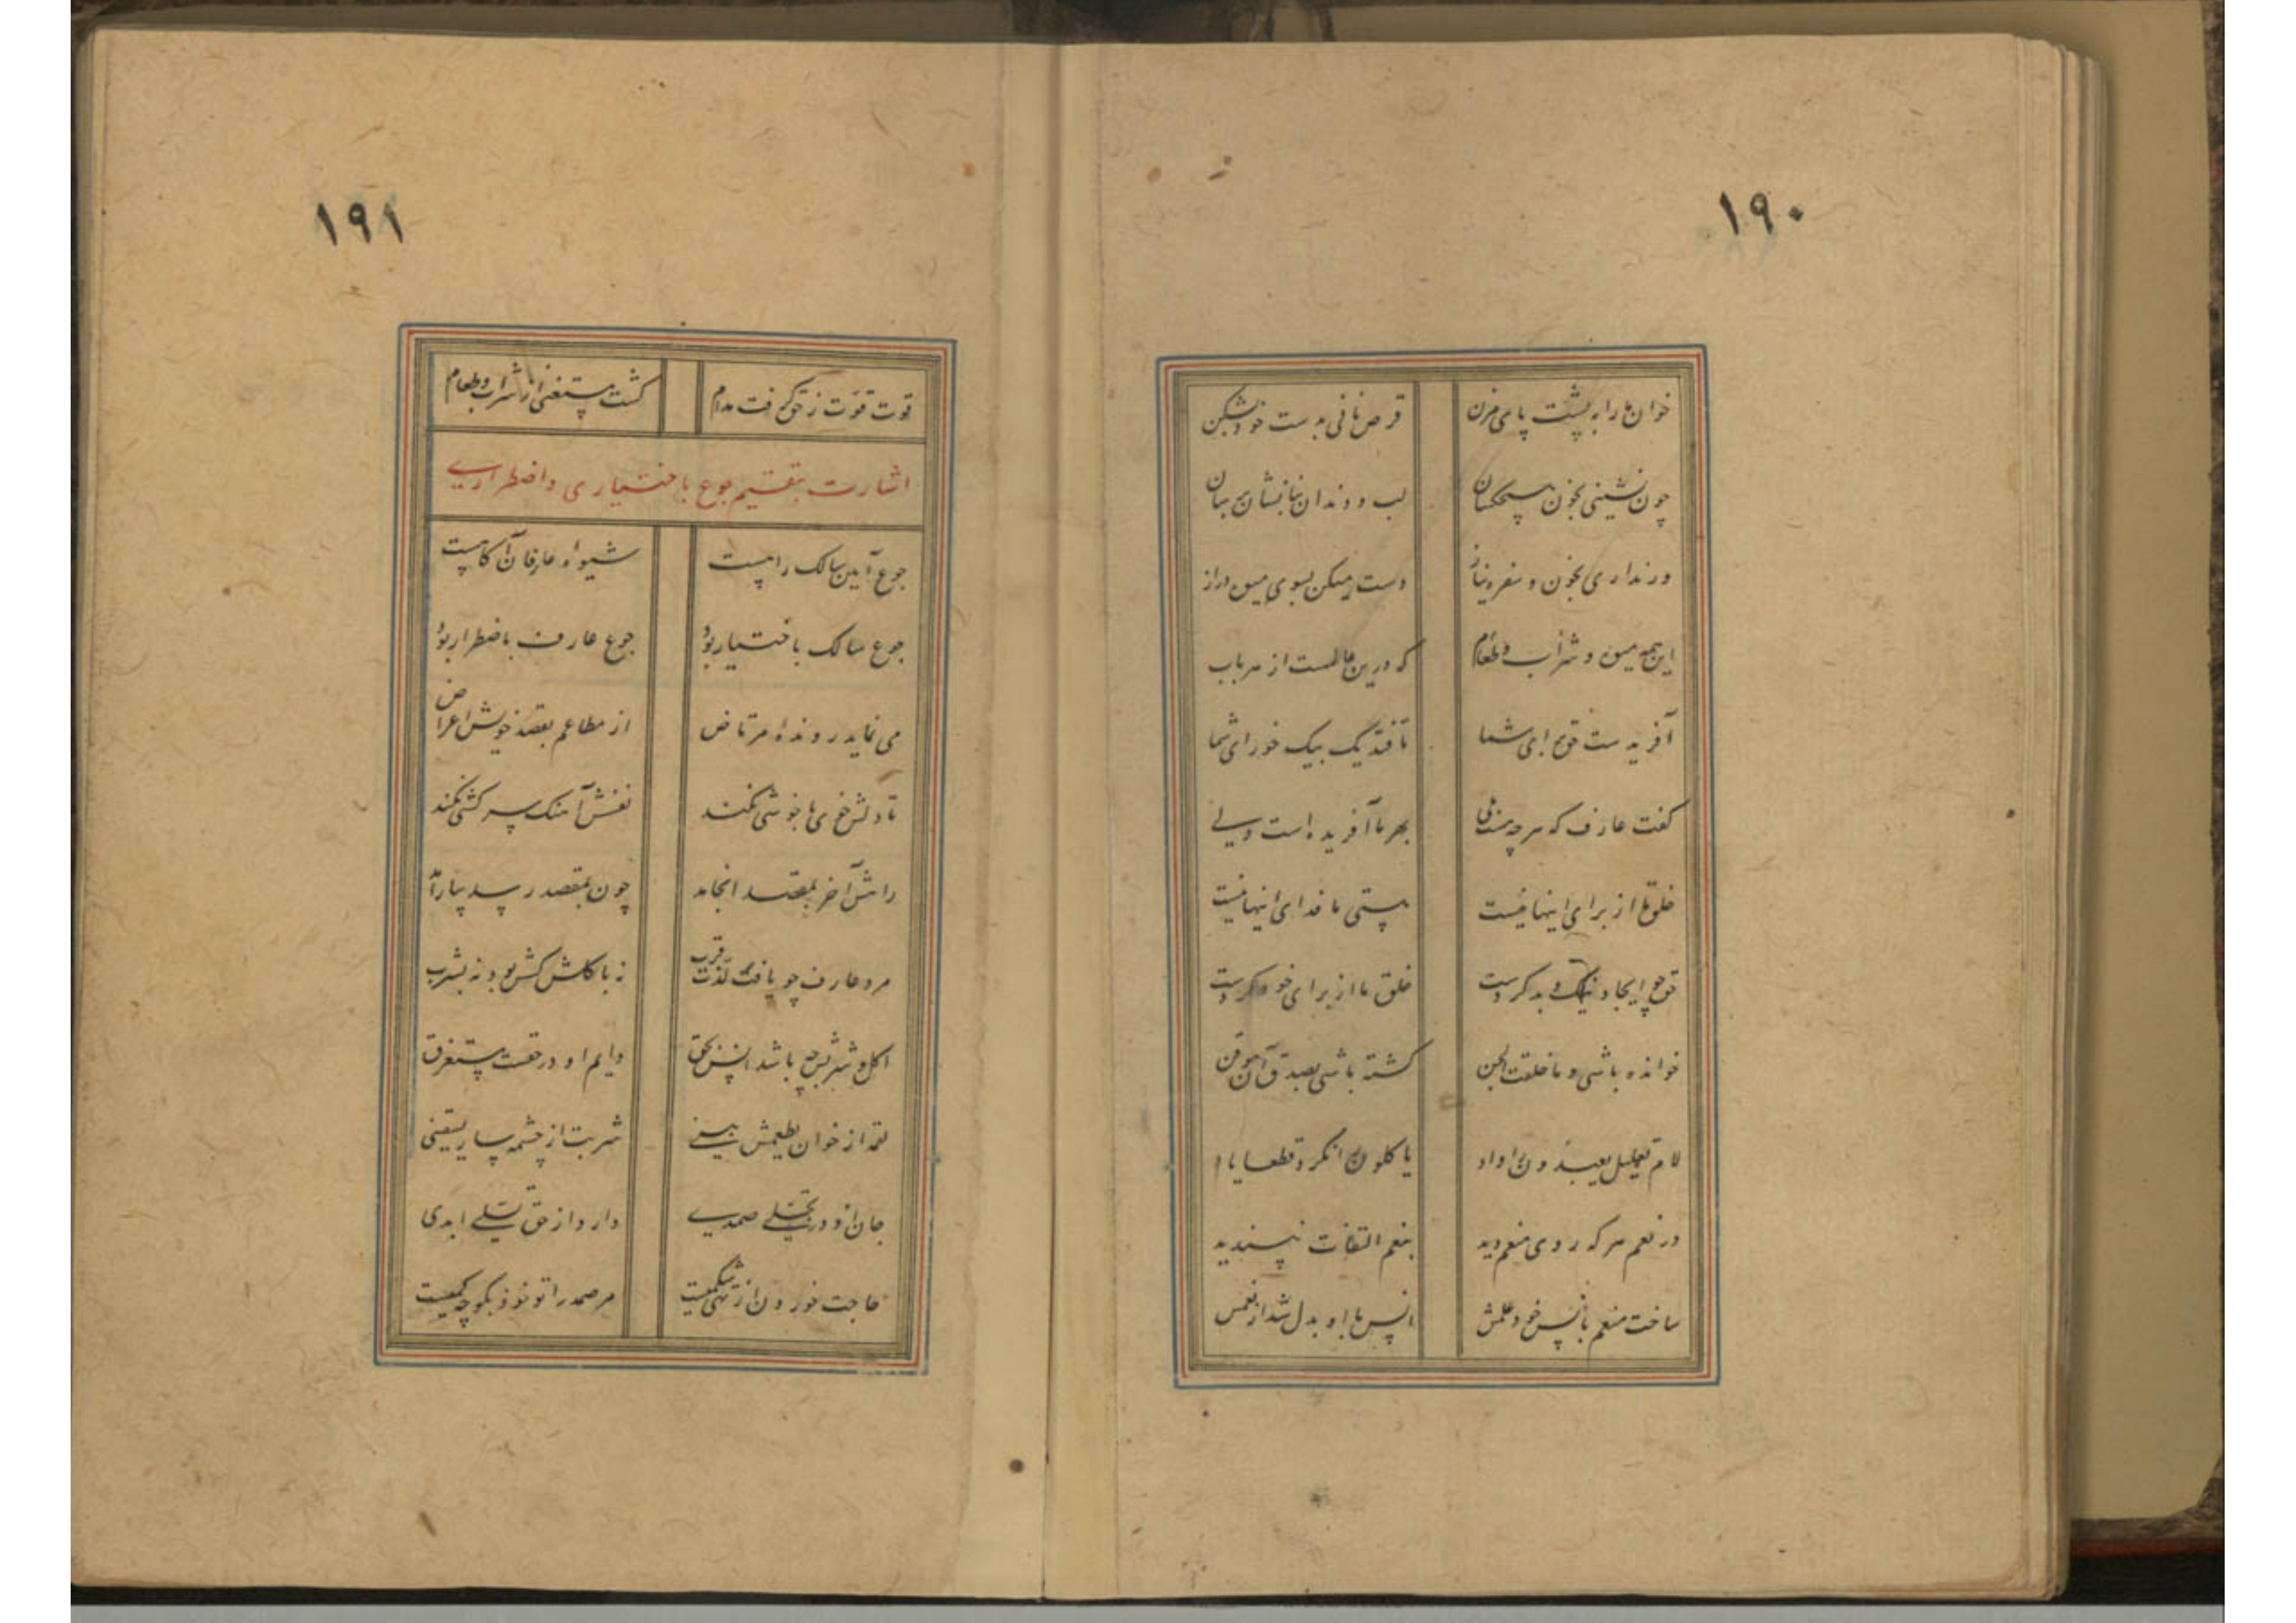 ۱۹۰
خوان ما را به پشت پای مزن قرص نانی به دست خود بشکن
چون نشینی بخون لب و دندان
ور نداری بخون و سفره نیاز دست میکن بسوی میوه دراز
این همه میوه و شراب و طعام که درین عالمست از هر باب
آفریدست حق برای شما تا فتد یک بیک خورای شما
کفت عارف که هر چه بهر ما آفریده است ولی
خلق ما از برای اینها نیست هستی ما فدای اینها نیست
حق چو ایجاد نیک و بد کردست خلق ما از برای خود کردست
خوانده باشی و ما خلقت الجن کشته باشی بصدق آن موقن
لام تعلیل یعبدون را داد یاکلون را نکرد قطعا یاد
در نعم هر که روی منعم دید بنعم التفات نپسندید
ساخت منعم بانس خود علمش انس با او بدل شد از نعمش
۱۹۱
قوت قوت ز حق گرفت مدام کشت مستغنی از شراب و طعام
اشارت بتقسیم جوع باختیاری و اضطراری
جوع آیین سالک راهست شیوه عارفان آکاهست
جوع سالک باختیار بود جوع عارف باضطرار بود
می نماید رونده مرتاض از مطاعم بقصد خویش اعراض
تا دلش خو بناخوشی نکند نفسش آهنک سرکشی نکند
راهش آخر بمقصد انجامد چون بمقصد رسد بیارامد
مرد عارف چو یافت لذت قرب نه باکلش کشش بود نه بشرب
اکل و شربش چه باشد انس بحق دایم او در حقست مستغرق
لقمه از خوان یطعمش بیند شربت از چشمه سار یسقینی
جان او در تجلی صمدی دارد از حق تسلی ابدی
حاجت خوردن از تهی شکمیست مر صمد را تو خود بکو چه کمیست